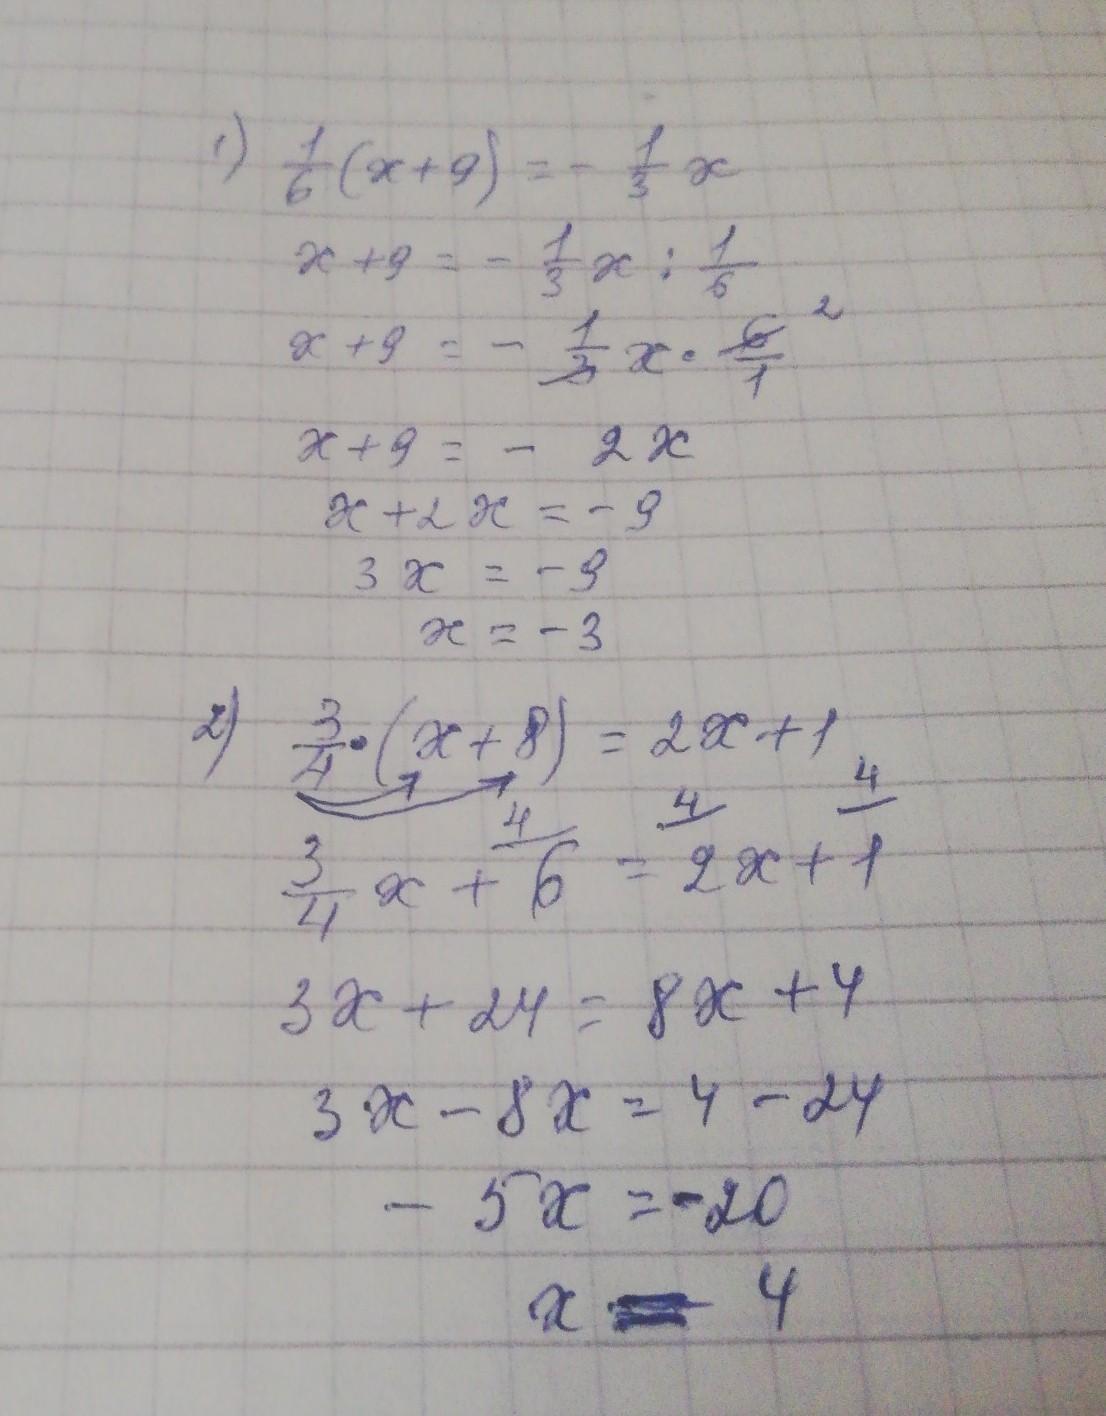 1) 1/6 (x+9) = - 1/3 x
x+9 = - 1/3 x : 1/6
x+9 = - 1/3 x · 6/1 2
x+9 = - 2x
x+2x = -9
3x = -9
x = -3
2) 3/4 · (x+8) = 2x+1
4 4 4
3/4 x + 6 = 2x+1
3x + 24 = 8x + 4
3x - 8x = 4 - 24
- 5x = -20
x = 4